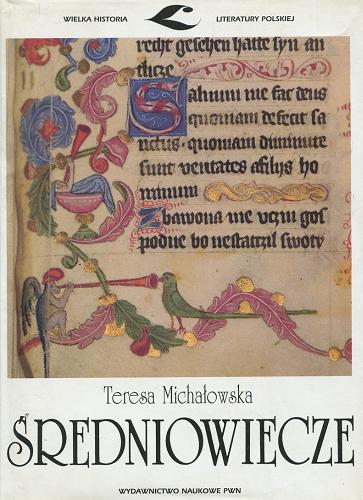 WIELKA HISTORIA LITERATURY POLSKIEJ
recht geschen hatte syn an
tlicze
Saluum me fac deus
quoniam defecit sa
nctus · quoniam diminute
sunt veritates afilijs ho
minum
Zbawona me vczin gos
podne bo nestatczil swoty
Teresa Michałowska
ŚREDNIOWIECZE
WYDAWNICTWO NAUKOWE PWN